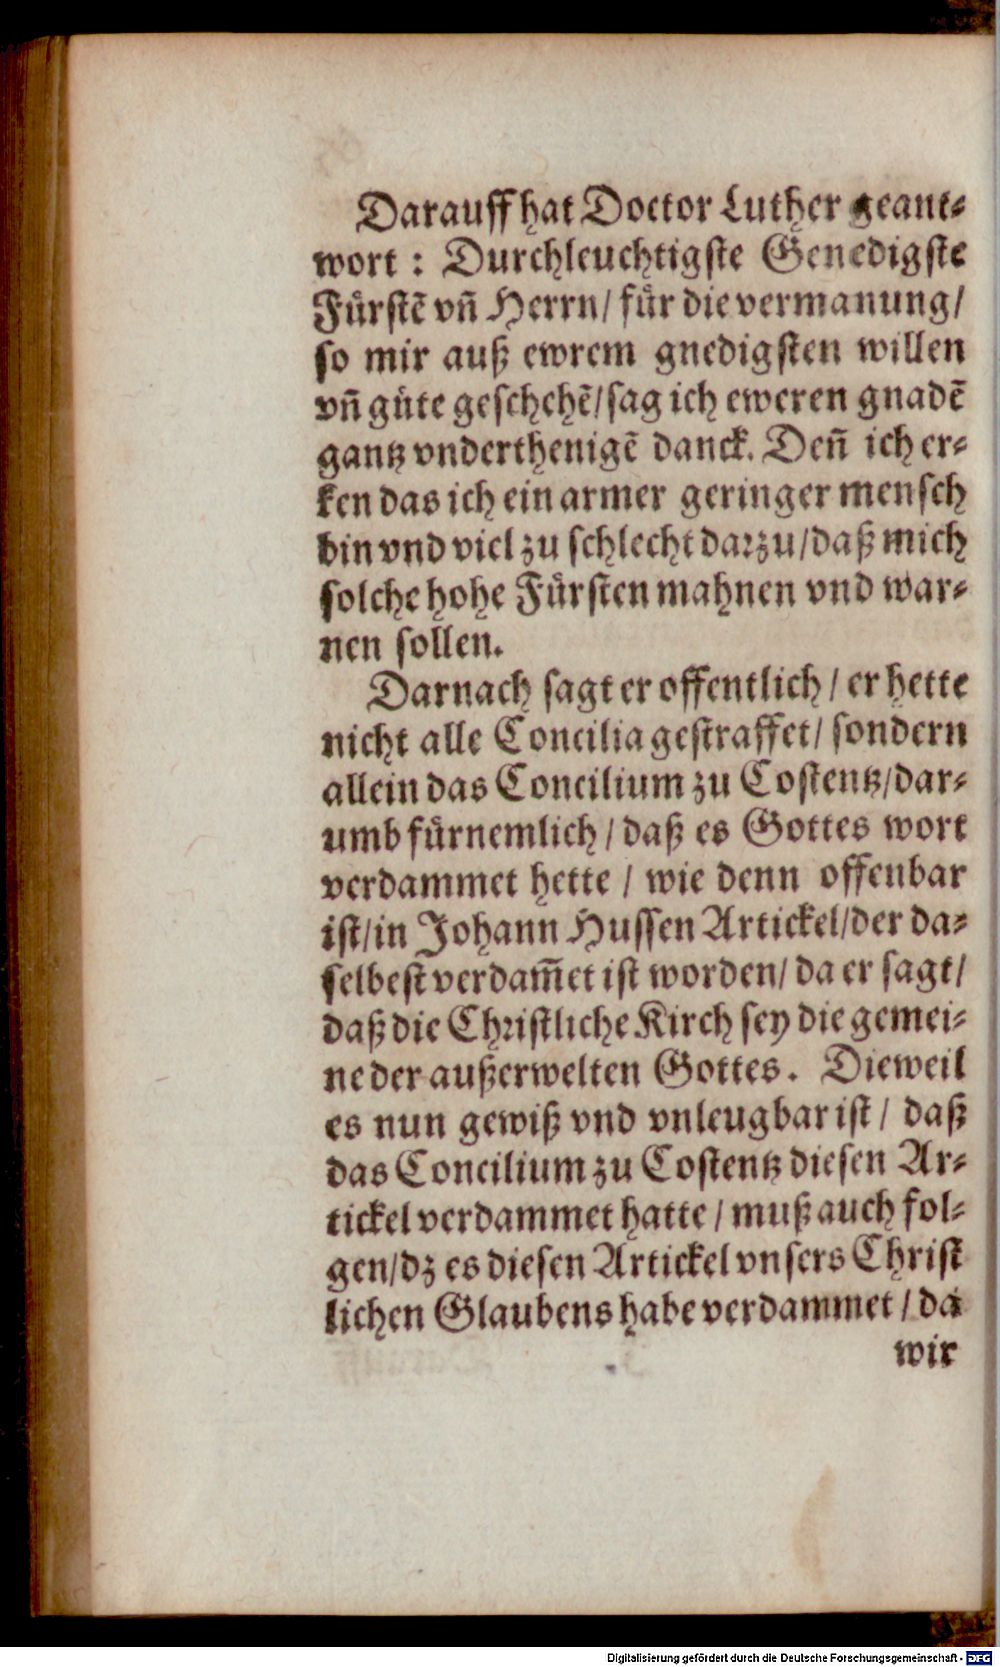 Darauff hat Doctor Luther geant⸗
wort : Durchleuchtigste Genedigste
Fürstẽ vñ Herrn/ für die vermanung/
so mir auß ewrem gnedigsten willen
vñ güte geschehẽ/ sag ich eweren gnadẽ
gantz vnderthenigẽ danck. Deñ ich er⸗
ken das ich ein armer geringer mensch
bin vnd viel zu schlecht darzu/ daß mich
solche hohe Fürsten mahnen vnd war⸗
nen sollen.
Darnach sagt er offentlich / er hette
nicht alle Concilia gestraffet/ sondern
allein das Concilium zu Costentz/ dar⸗
umb fürnemlich / daß es Gottes wort
verdammet hette / wie denn offenbar
ist/ in Johann Hussen Artickel/ der da⸗
selbest verdam̃et ist worden/ da er sagt/
daß die Christliche Kirch sey die gemei⸗
ne der außerwelten Gottes. Dieweil
es nun gewiß vnd vnleugbar ist / daß
das Concilium zu Costentz diesen Ar⸗
tickel verdammet hatte / muß auch fol⸗
gen/ dz es diesen Artickel vnsers Christ
lichen Glaubens habe verdammet / da
wir
Digitalisierung gefördert durch die Deutsche Forschungsgemeinschaft - DFG